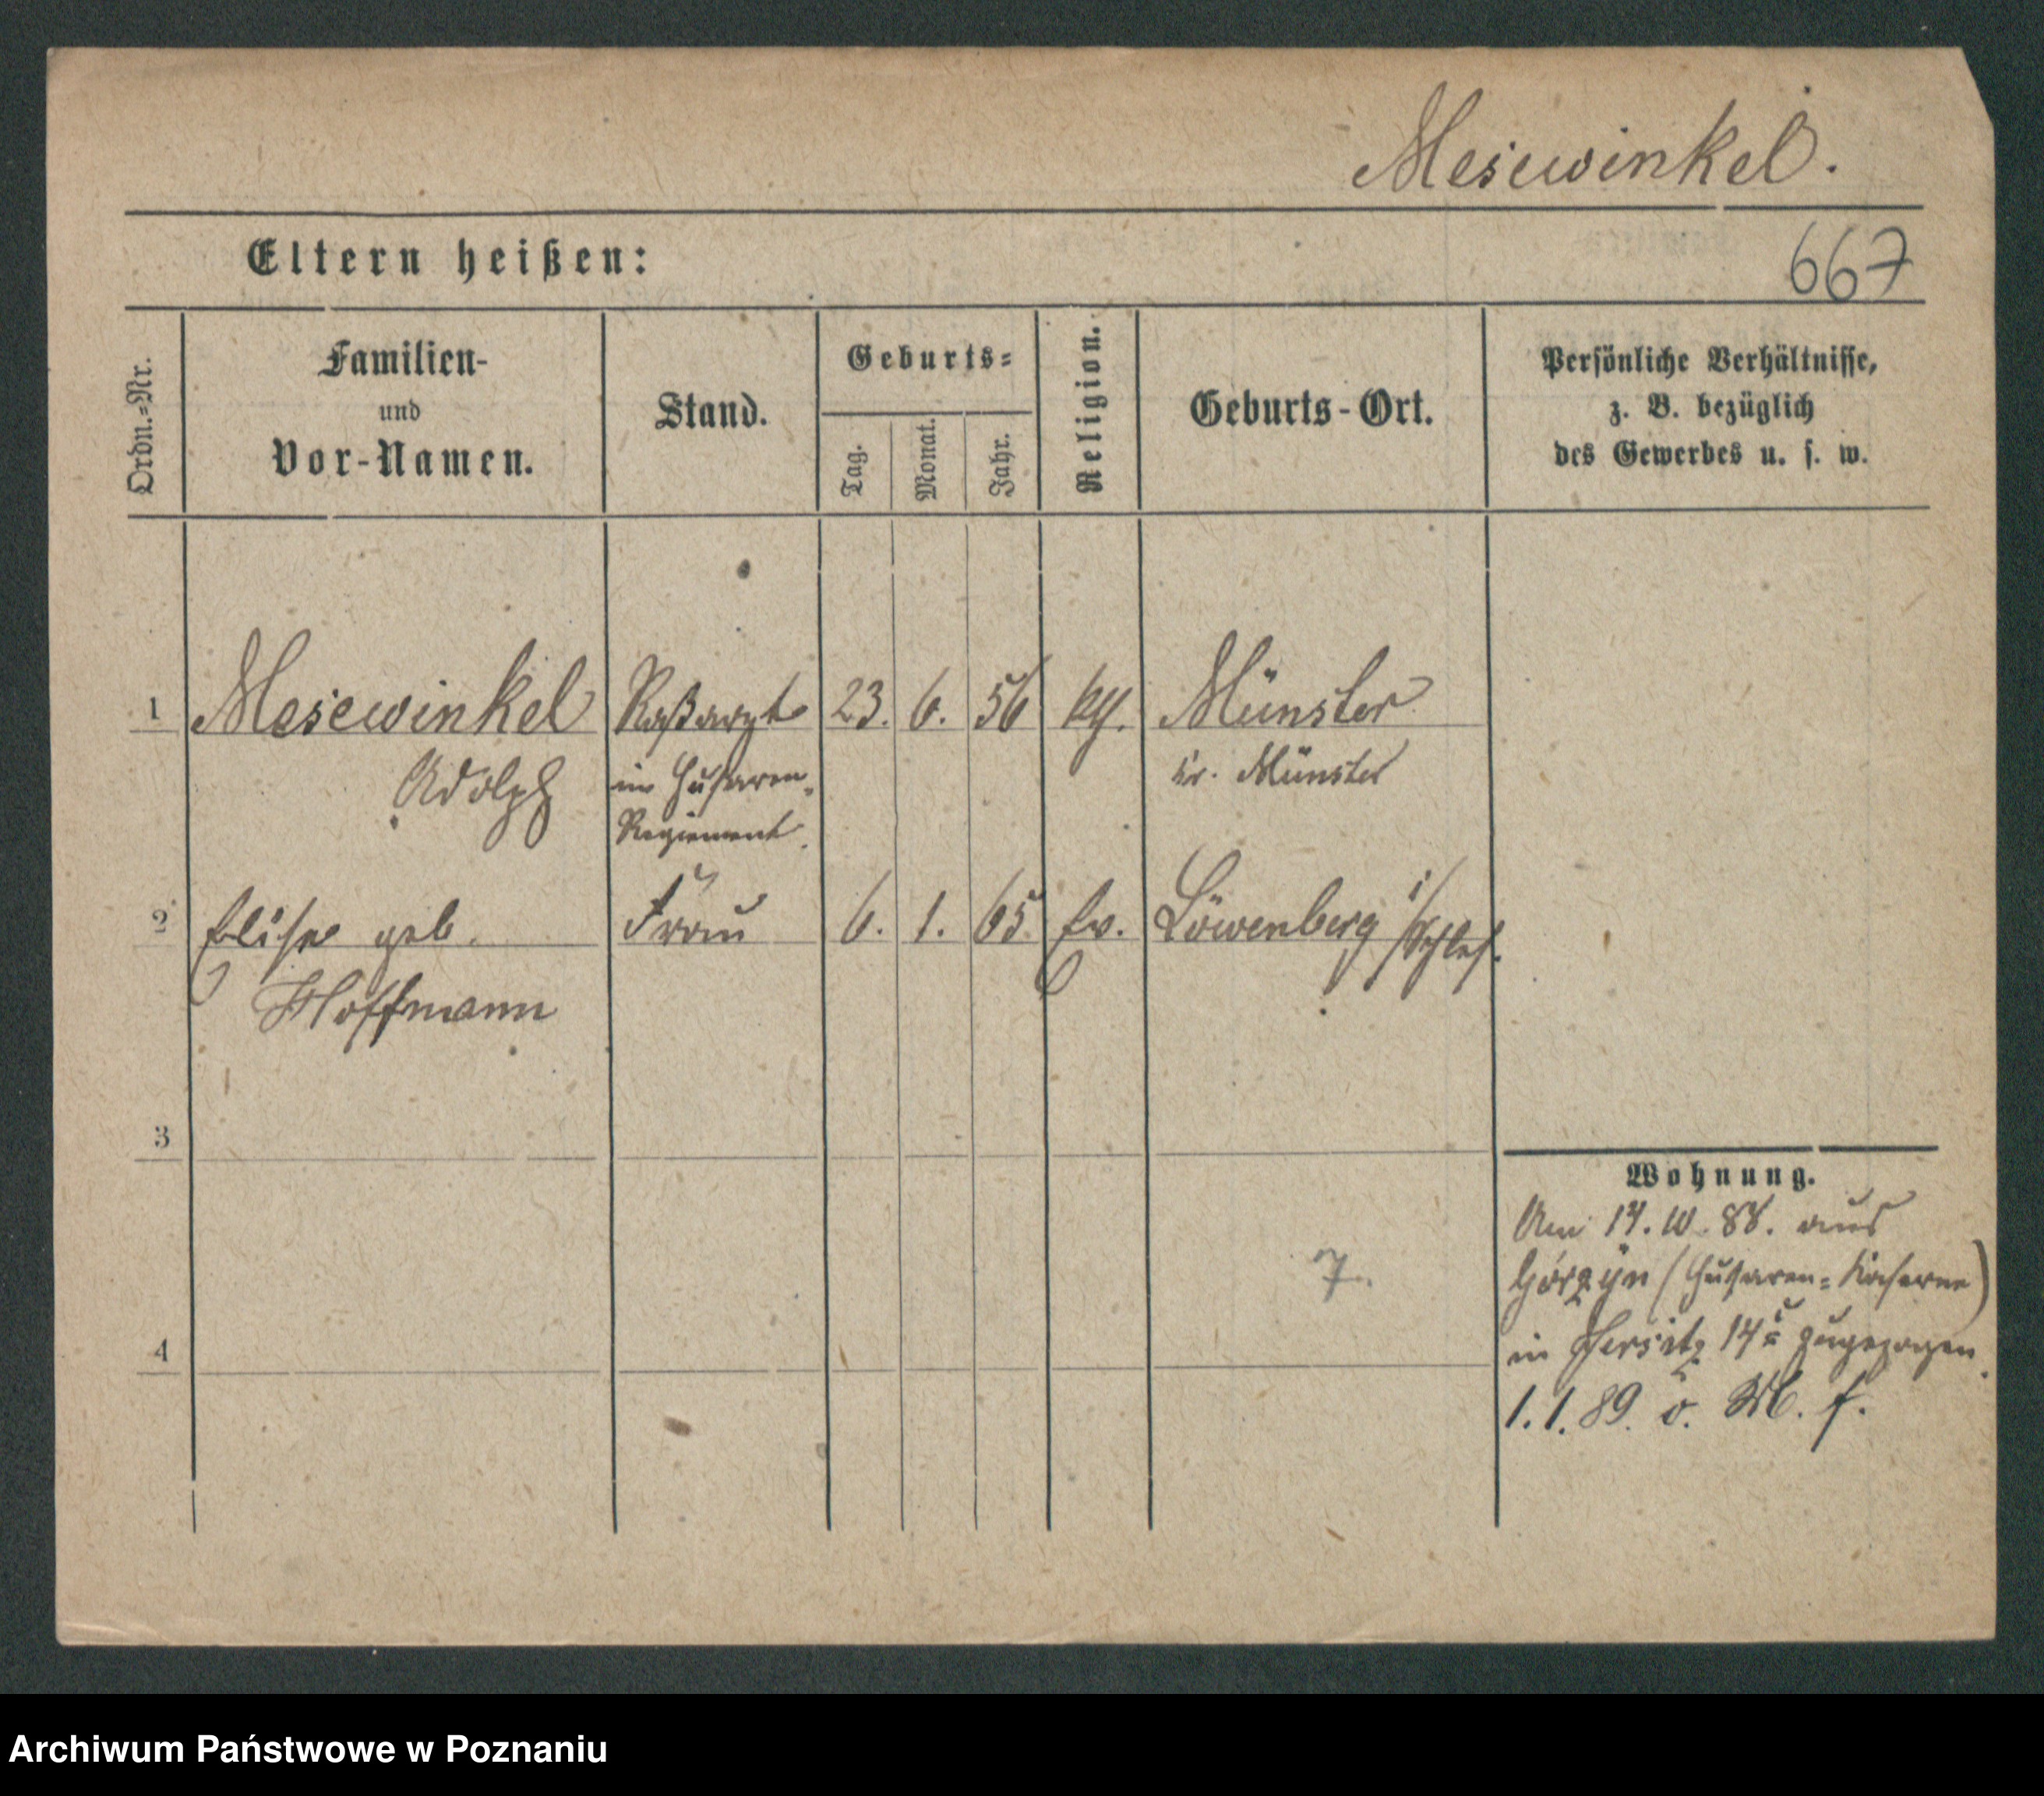 Mesewinkel.
Eltern heißen:
667
Ordn.-Nr.
Familien-
und
Vor-Namen.
Stand.
Geburts-
Tag.
Monat.
Jahr.
Religion.
Geburts-Ort.
Persönliche Verhältnisse,
z. B. bezüglich
des Gewerbes u. s. w.
1 Mesewinkel Roßarzt 23. 6. 56 Münster
Adolph im Husaren- Kr. Münster
Regiement.
2 Elise geb. Frau 6. 1. 65 Ev. Löwenberg i/Schles.
Hoffmann
3
Wohnung.
Am 17. 10. 88. aus
Górzyn (Husaren-Kaserne)
7.
in Jersitz zugezogen.
4
1. 1. 89. v.
Archiwum Państwowe w Poznaniu